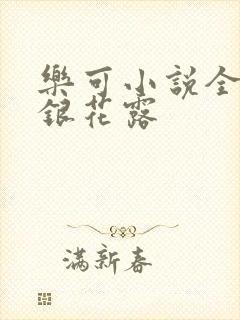 樂可小說全
銀花露
滿新春